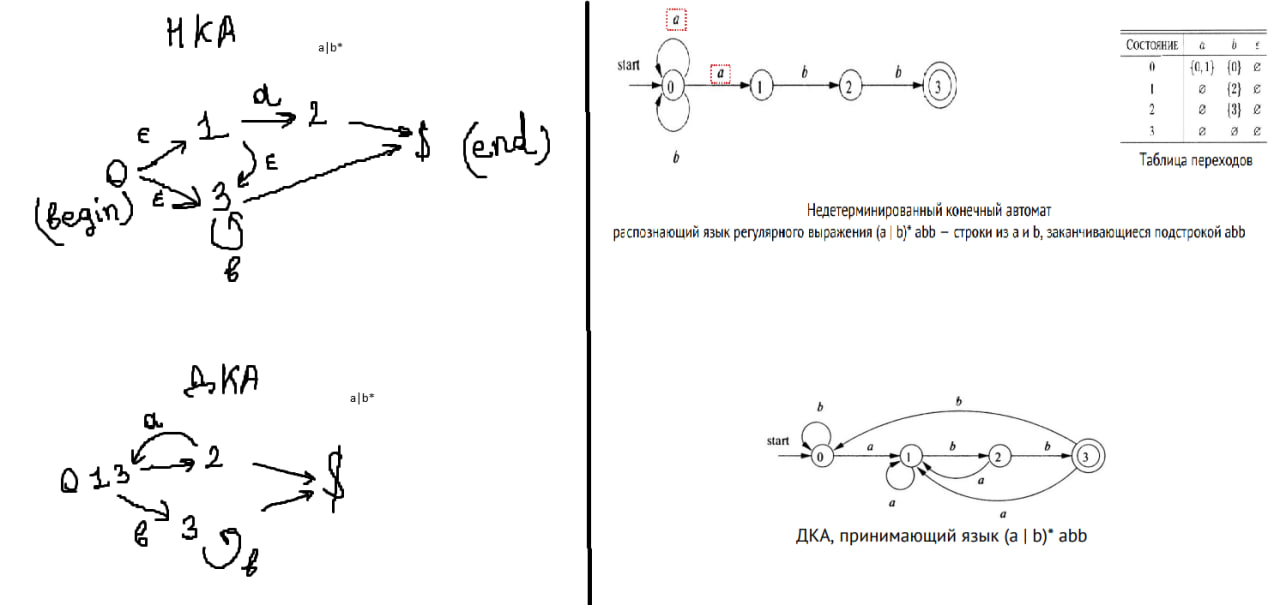 НКА
a|b*
a
ε
1
2
0
ε
ε
3
$ (end)
(begin)
в
ДКА
a|b*
a
0 1 3
2
$
в
3
в
a
start
a
b
b
0
1
2
3
b
Состояние a b ε
0 {0,1} {0} ∅
1 ∅ {2} ∅
2 ∅ {3} ∅
3 ∅ ∅ ∅
Таблица переходов
Недетерминированный конечный автомат
распознающий язык регулярного выражения (a | b)* abb – строки из a и b, заканчивающиеся подстрокой abb
b
b
start
a
b
b
0
1
2
3
a
a
a
ДКА, принимающий язык (a | b)* abb